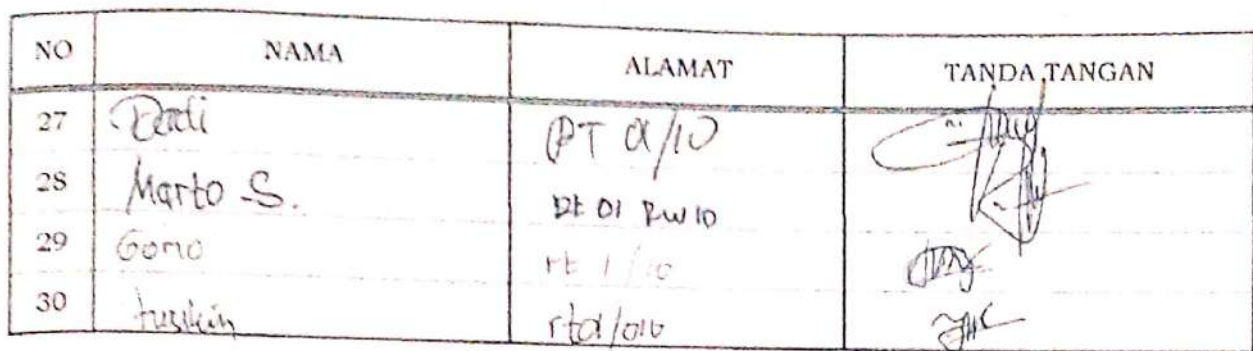 NO NAMA ALAMAT TANDA TANGAN
27 Dadi RT 01/10
28 Marto S. Rt 01 Rw 10
29 Gono rt 1/10
30 rt01/010